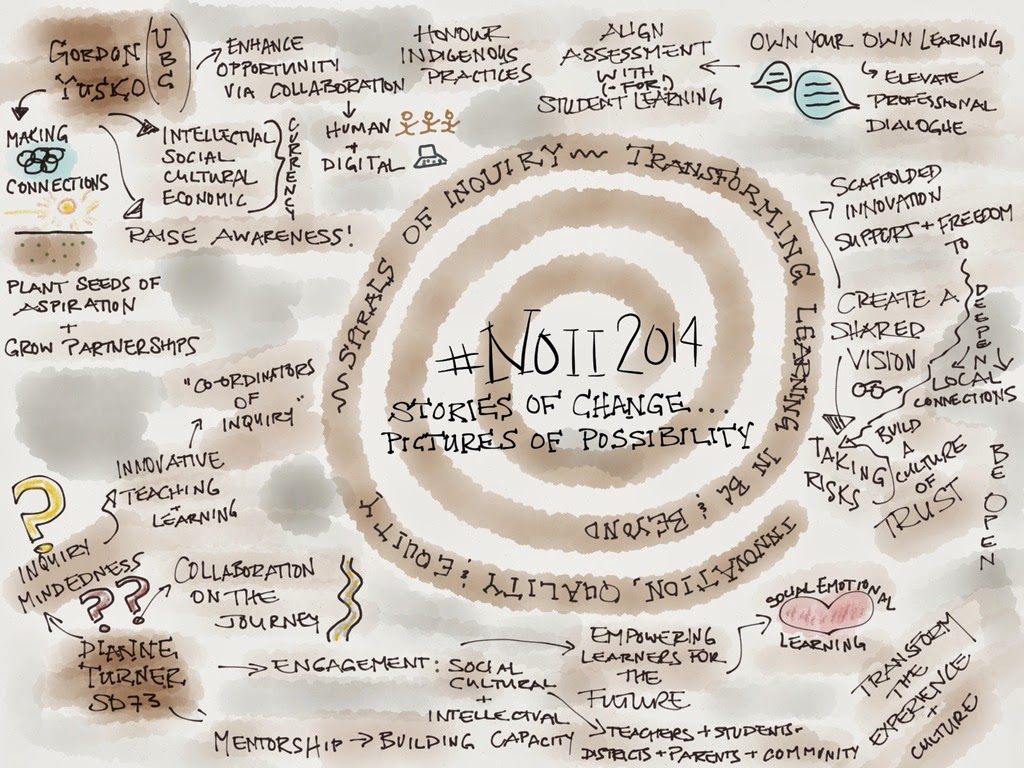 GORDON
YUSKO
UBC
ENHANCE
OPPORTUNITY
VIA COLLABORATION
HUMAN
+
DIGITAL
HONOUR
INDIGENOUS
PRACTICES
ALIGN
ASSESSMENT
WITH
(-FOR-)
STUDENT LEARNING
OWN YOUR OWN LEARNING
ELEVATE
PROFESSIONAL
DIALOGUE
MAKING
CONNECTIONS
INTELLECTUAL
SOCIAL
CULTURAL
ECONOMIC
CURRENCY
RAISE AWARENESS!
PLANT SEEDS OF
ASPIRATION
+
GROW PARTNERSHIPS
SPIRALS OF INQUIRY ~ TRANSFORMING LEARNING IN BC & BEYOND
INNOVATION, QUALITY & EQUITY
#NOII 2014
STORIES OF CHANGE...
PICTURES OF POSSIBILITY
SCAFFOLDED
INNOVATION
SUPPORT + FREEDOM
TO
DEEPEN
LOCAL
CONNECTIONS
CREATE A
SHARED
VISION
TAKING
RISKS
BUILD
A
CULTURE
OF
TRUST
BE OPEN
"CO-ORDINATORS
OF
INQUIRY"
INNOVATIVE
TEACHING
+
LEARNING
INQUIRY
MINDEDNESS
COLLABORATION
ON THE
JOURNEY
DIANNE
TURNER
SD73
ENGAGEMENT: SOCIAL
CULTURAL
+
INTELLECTUAL
MENTORSHIP → BUILDING CAPACITY
EMPOWERING
LEARNERS FOR
THE
FUTURE
SOCIAL EMOTIONAL
LEARNING
TEACHERS + STUDENTS
DISTRICTS + PARENTS + COMMUNITY
TRANSFORM
THE
EXPERIENCE
+
CULTURE